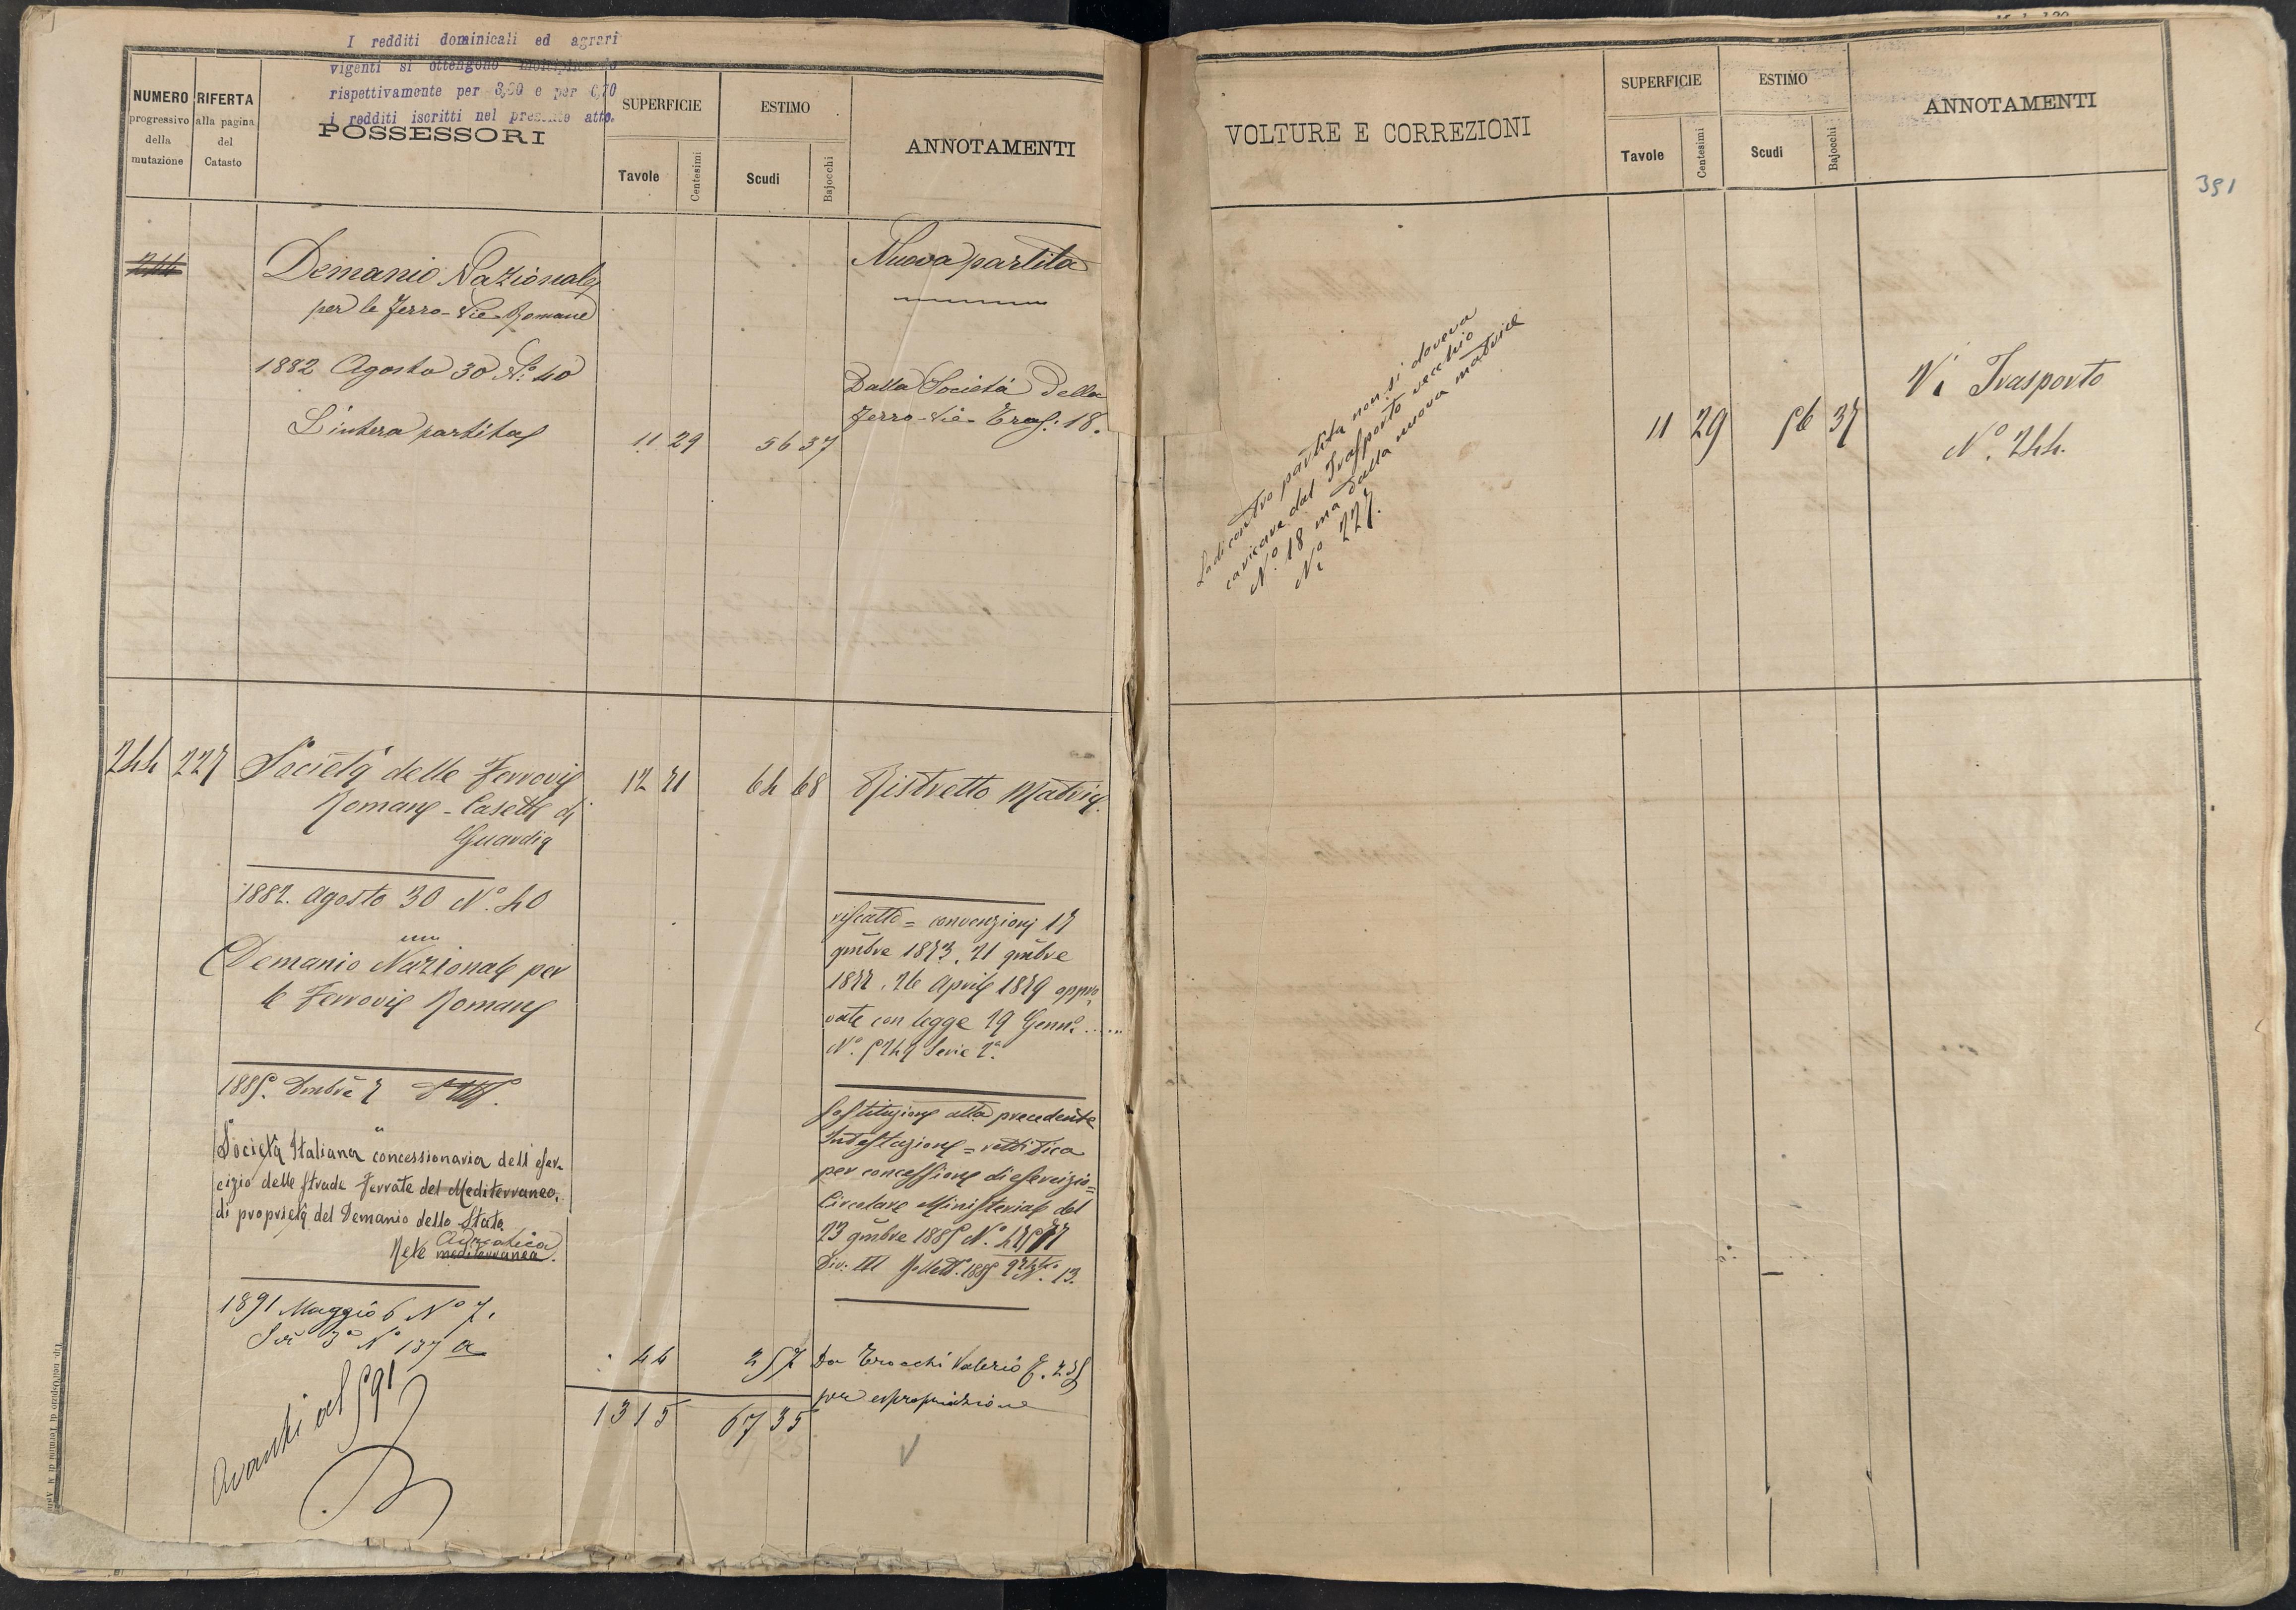 I redditi dominicali ed agrari
vigenti si ottengono
rispettivamente per 3,20 e per 0,70
i redditi iscritti nel presente atto.
NUMERO
progressivo
della
mutazione
RIFERTA
alla pagina
del
Catasto
POSSESSORI
SUPERFICIE
Tavole
Centesimi
ESTIMO
Scudi
Bajocchi
ANNOTAMENTI
244
Demanio Nazionale
per le Ferro-Vie Romane
Nuova partita
1882 Agosto 30 N.º 40
L'intera partita
11 29
56 37
Dalla Società della
Ferro-Vie Trasp: 18.
244 227
Società delle Ferrovie
Romane - Casette di
Guardia
12 71
64 68
Ristretto Matrice
1882. Agosto 30 N.º 40
Demanio Nazionale per
le Ferrovie Romane
riscatto = convenzioni 17
9mbre 1873, 21 9mbre
1877, 26 Aprile 1879 appro
vate con legge 29 Genn.º
N.º 5249 Serie 2.ª
1885. Dmbre 7
Società Italiana concessionaria dell eser-
cizio delle strade Ferrate del Mediterraneo,
di proprietà del Demanio dello Stato.
Adriatica
Rete mediterranea.
Sostituzione alla precedente
Intestazione = rettifica
per concessione di esercizio =
Circolare Ministeriale del
23 9mbre 1885 N.º
Div: III Bollett. 1885 N. 13.
1891 Maggio 6 N.º 7.
3ª N.º 137 a
44
2 57
Da Trocchi Valerio
per espropriazione
13 15
67 35
Avanti al 591
VOLTURE E CORREZIONI
SUPERFICIE
Tavole
Centesimi
ESTIMO
Scudi
Bajocchi
ANNOTAMENTI
391
La dicontro partita non si doveva
caricare dal Trasporto vecchio
N.º 18 ma dalla nuova matrice
N.º 227.
11 29
56 37
Vi Trasporto
N.º 244.